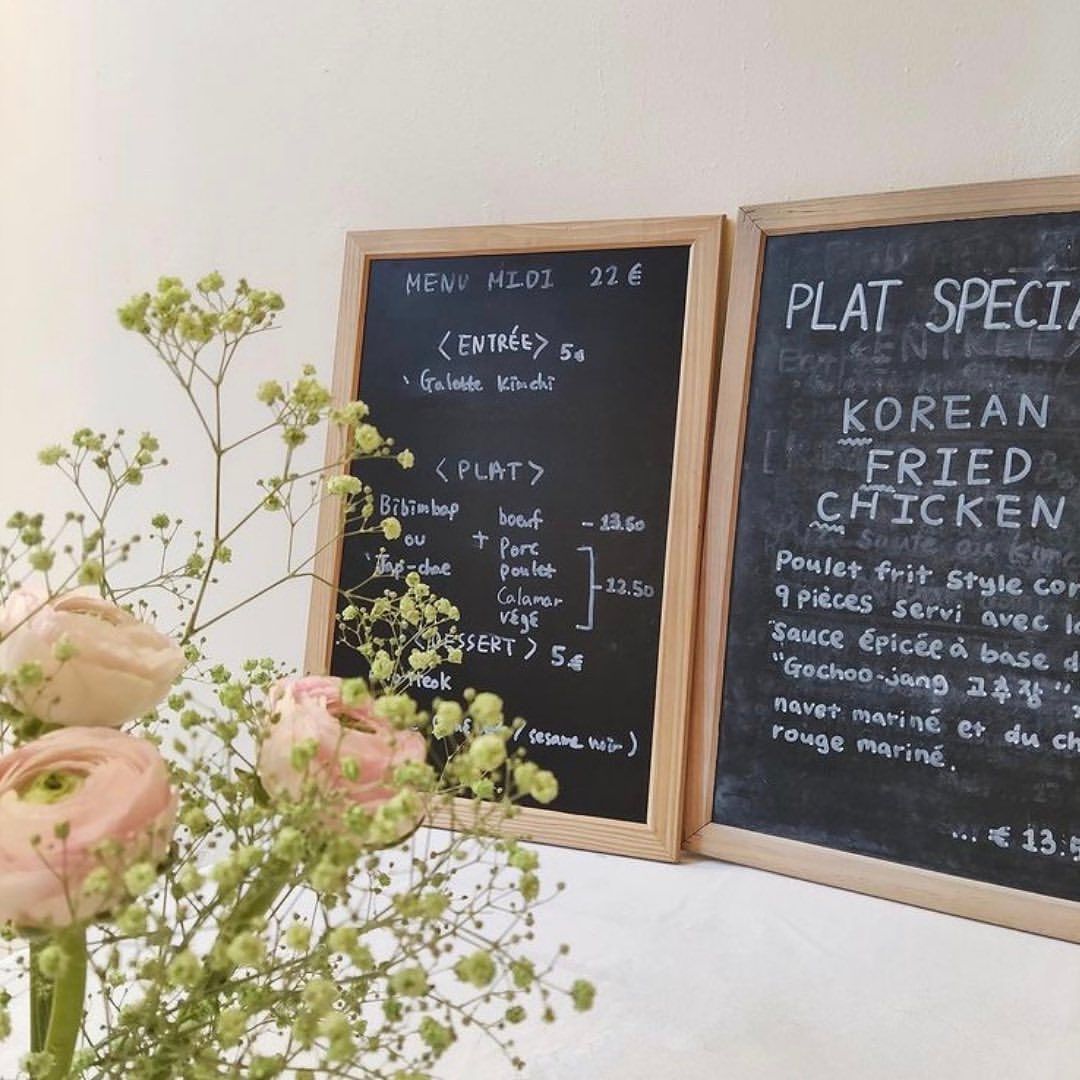 MENU MIDI 22 €
<ENTRÉE> 5€
Galette Kimchi
<PLAT>
Bibimbap
ou
Jap-chae
+
boeuf - 13.50
Porc
poulet
Calamar
végé
- 12.50
<DESSERT> 5€
(sesame noir)
PLAT SPECIA
KOREAN
FRIED
CHICKEN
Poulet frit style cor
9 pièces servi avec la
sauce épicée à base d
"Gochoo-jang 고추장"
navet mariné et du ch
rouge mariné.
... € 13.5